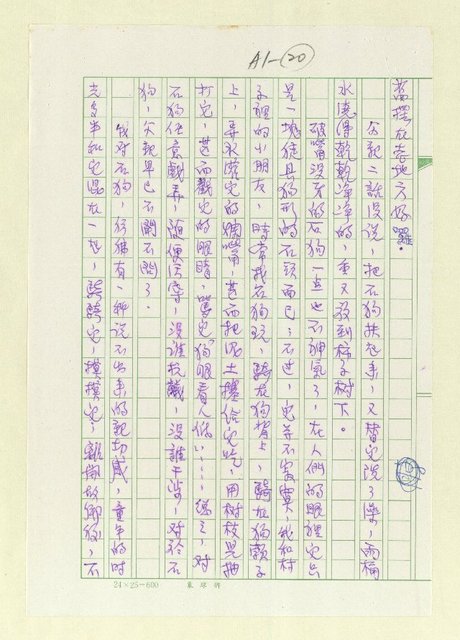 A1-20
舊擺在老地方好囉。
父親二話沒說,把石狗扶起來,又替它洗了澡,兩桶
水澆得乾乾淨淨的,重又放到柿子樹下。
破嘴沒牙的石狗一點也不神氣了,在人們的眼裡它只
是一塊徒具狗形的石頭而已;不過,它並不寂寞,我和村
子裡的小朋友,時常找石狗玩,騎在狗背上,騎在狗頸子
上,弄水灌它的爛嘴,甚而把泥土攥給它吃,用樹枝兒抽
打它,甚而戳它的眼睛,罵它狗眼看人低……總之,對
石狗任意戲弄,隨便污辱,沒誰抗議,沒誰干涉,對於石
狗,父親早已不聞不問了。
我對石狗,彷彿有一種說不出來的親切感,童年的時
光多半和它混在一起,騎騎它,摸摸它,離開故鄉後,不
24×25=600